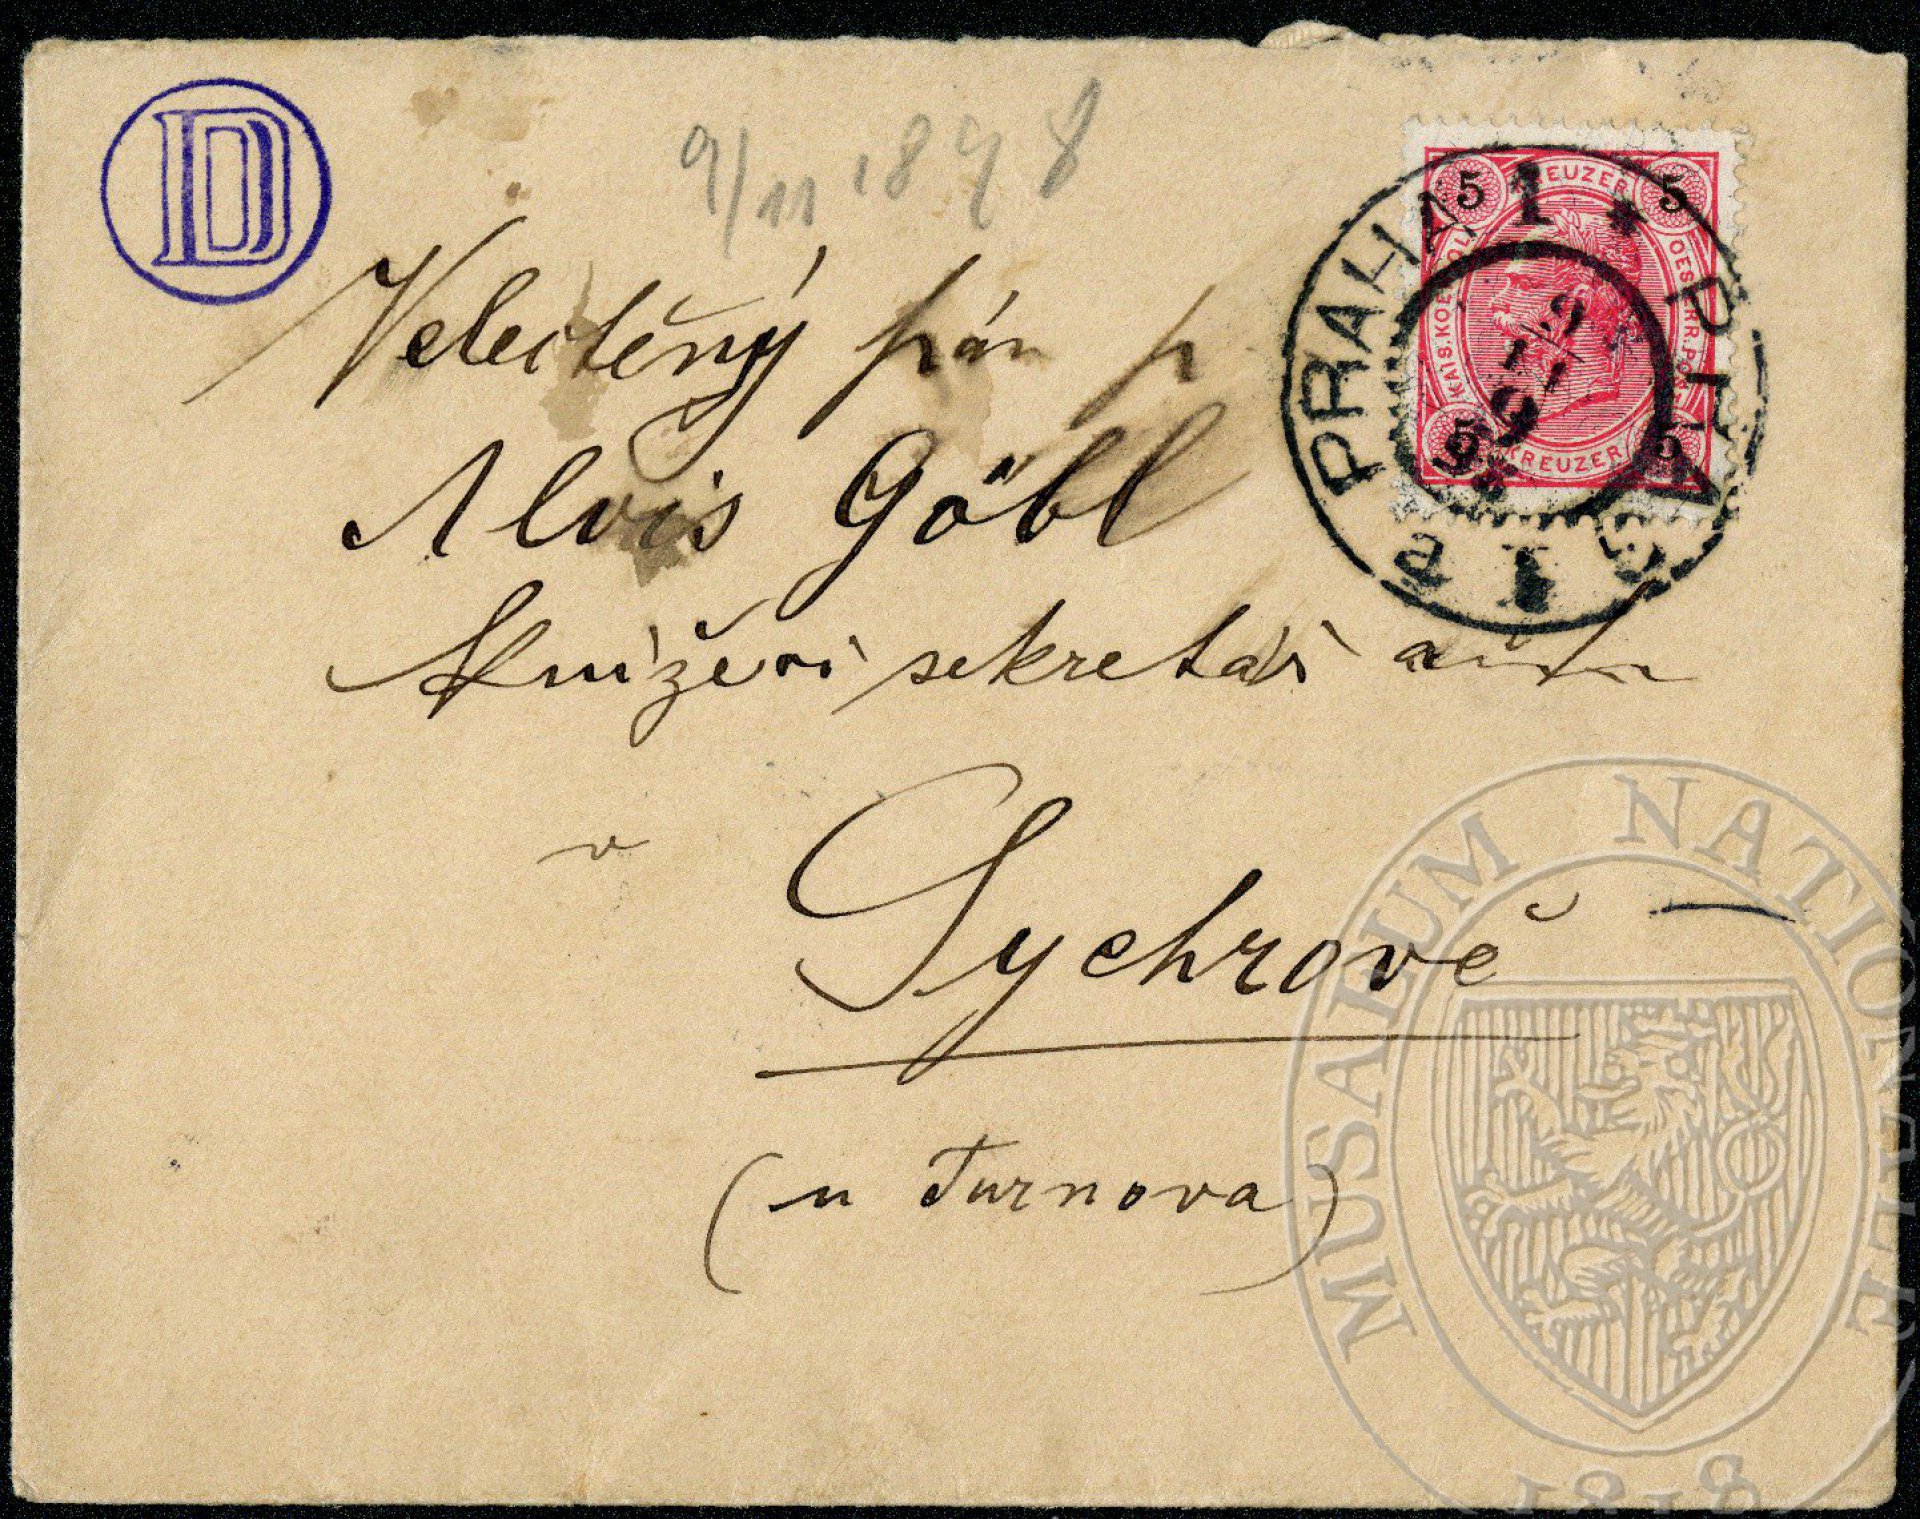 D
9/11 1898
Velectěný pán p.
Alois Göbl
Knížecí sekretář atd.
v Sychrově
(u Turnova)
5 KREUZER 5
KAIS. KOENIGL. OESTERR. POST
5 KREUZER 5
PRAHA 1 * PRAG 1
9
11
98
MUSAEUM NATIONALE
1818